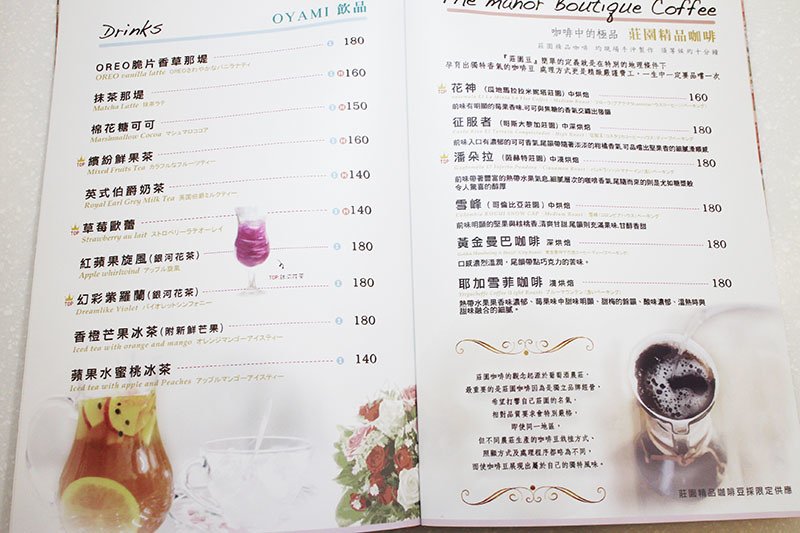 Drinks
OYAMI 飲品
OREO脆片香草那堤 180
OREO vanilla latte OREOさわやかなバニラナティ
抹茶那堤 160
Matcha Latte 抹茶ラテ
棉花糖可可 150
Marshmallow Cocoa マシュマロココア
TOP 繽紛鮮果茶 160
Mixed Fruits Tea カラフルなフルーツティー
英式伯爵奶茶 140
Royal Earl Grey Milk Tea 英国伯爵ミルクティー
TOP 草莓歐蕾 140
Strawberry au lait ストロベリーラテオーレイ
紅蘋果旋風(銀河花茶) 180
Apple whirlwind アップル旋風
TOP 幻彩紫羅蘭(銀河花茶) 180
Dreamlike Violet バイオレットシンフォニー
香橙芒果冰茶(附新鮮芒果) 180
Iced tea with orange and mango オレンジマンゴーアイスティー
蘋果水蜜桃冰茶 140
Iced tea with apple and Peaches アップルマンゴーアイスティー
The Manor Boutique Coffee
咖啡中的極品 莊園精品咖啡
莊園精品咖啡 均現場手沖製作 須等候約十分鐘
『莊園豆』簡單的定義就是在特別的地理條件下
孕育出獨特香氣的咖啡豆 處理方式更是精緻嚴謹費工,一生中一定要品嚐一次
花神 (瓜地馬拉拉米妮塔莊園) 中烘焙 160
前味有明顯的莓果香味,可可與焦糖的香氣交織出層韻
征服者 (哥斯大黎加莊園) 中深烘焙 180
前味入口有濃郁的可可香氣,尾韻帶隨著淡淡的柑橘香氣,可品嚐出堅果香的細膩滑順感
潘朵拉 (薇赫特莊園) 中淺烘焙 180
前味帶著豐富的熱帶水果氣息,細膩層次的咖啡香氣,尾隨而來的則是尤如糖漿般
令人驚喜的醇厚
雪峰 (哥倫比亞莊園) 中烘焙 180
前味明顯的堅果與核桃香,清爽甘甜,尾韻則充滿果味,甘醇香甜
黃金曼巴咖啡 深烘焙 180
口感濃烈溫潤,尾韻帶點巧克力的苦味。
耶加雪菲咖啡 淺烘焙 180
熱帶水果果香味濃郁、莓果味中甜味明顯、甜梅的餘韻、酸味濃郁、溫熱時與
甜味融合的細膩。
莊園咖啡的觀念起源於葡萄酒農莊,
最重要的是莊園咖啡因為是獨立品牌經營,
希望打響自己莊園的名氣,
相對品質要求會特別嚴格,
即使同一地區,
但不同農莊生產的咖啡豆栽植方式、
照顧方式及處理程序都略為不同,
而使咖啡豆展現出屬於自己的獨特風味。
莊園精品咖啡豆採限定供應